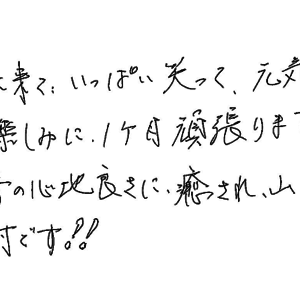 に来て、いっぱい笑って、元気
楽しみに、1ヶ月頑張りま
の心地良さに、癒され、山
です!!